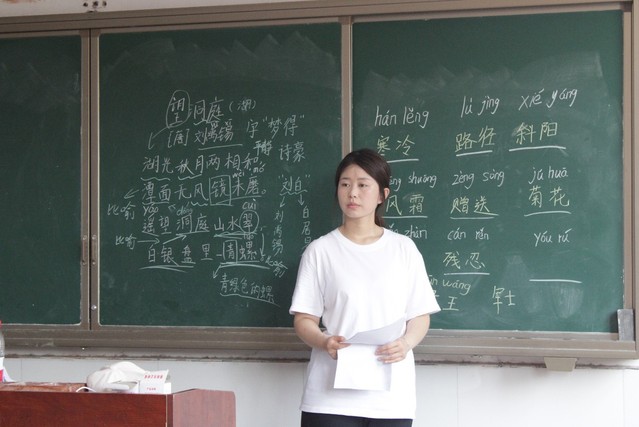 望洞庭（湖）
[唐] 刘禹锡 字“梦得”
诗豪
湖光秋月两相和
潭面无风镜未磨
刘白
比喻 yáo cuì
遥望洞庭山水翠
比喻 白银盘里一青螺
刘禹锡
白居
青绿色的螺
hán lěng lù jìng xié yáng
寒冷 路径 斜阳
shuāng zèng sòng jú huā
风霜 赠送 菊花
cán rěn yóu rú
残忍
wáng
王 军士